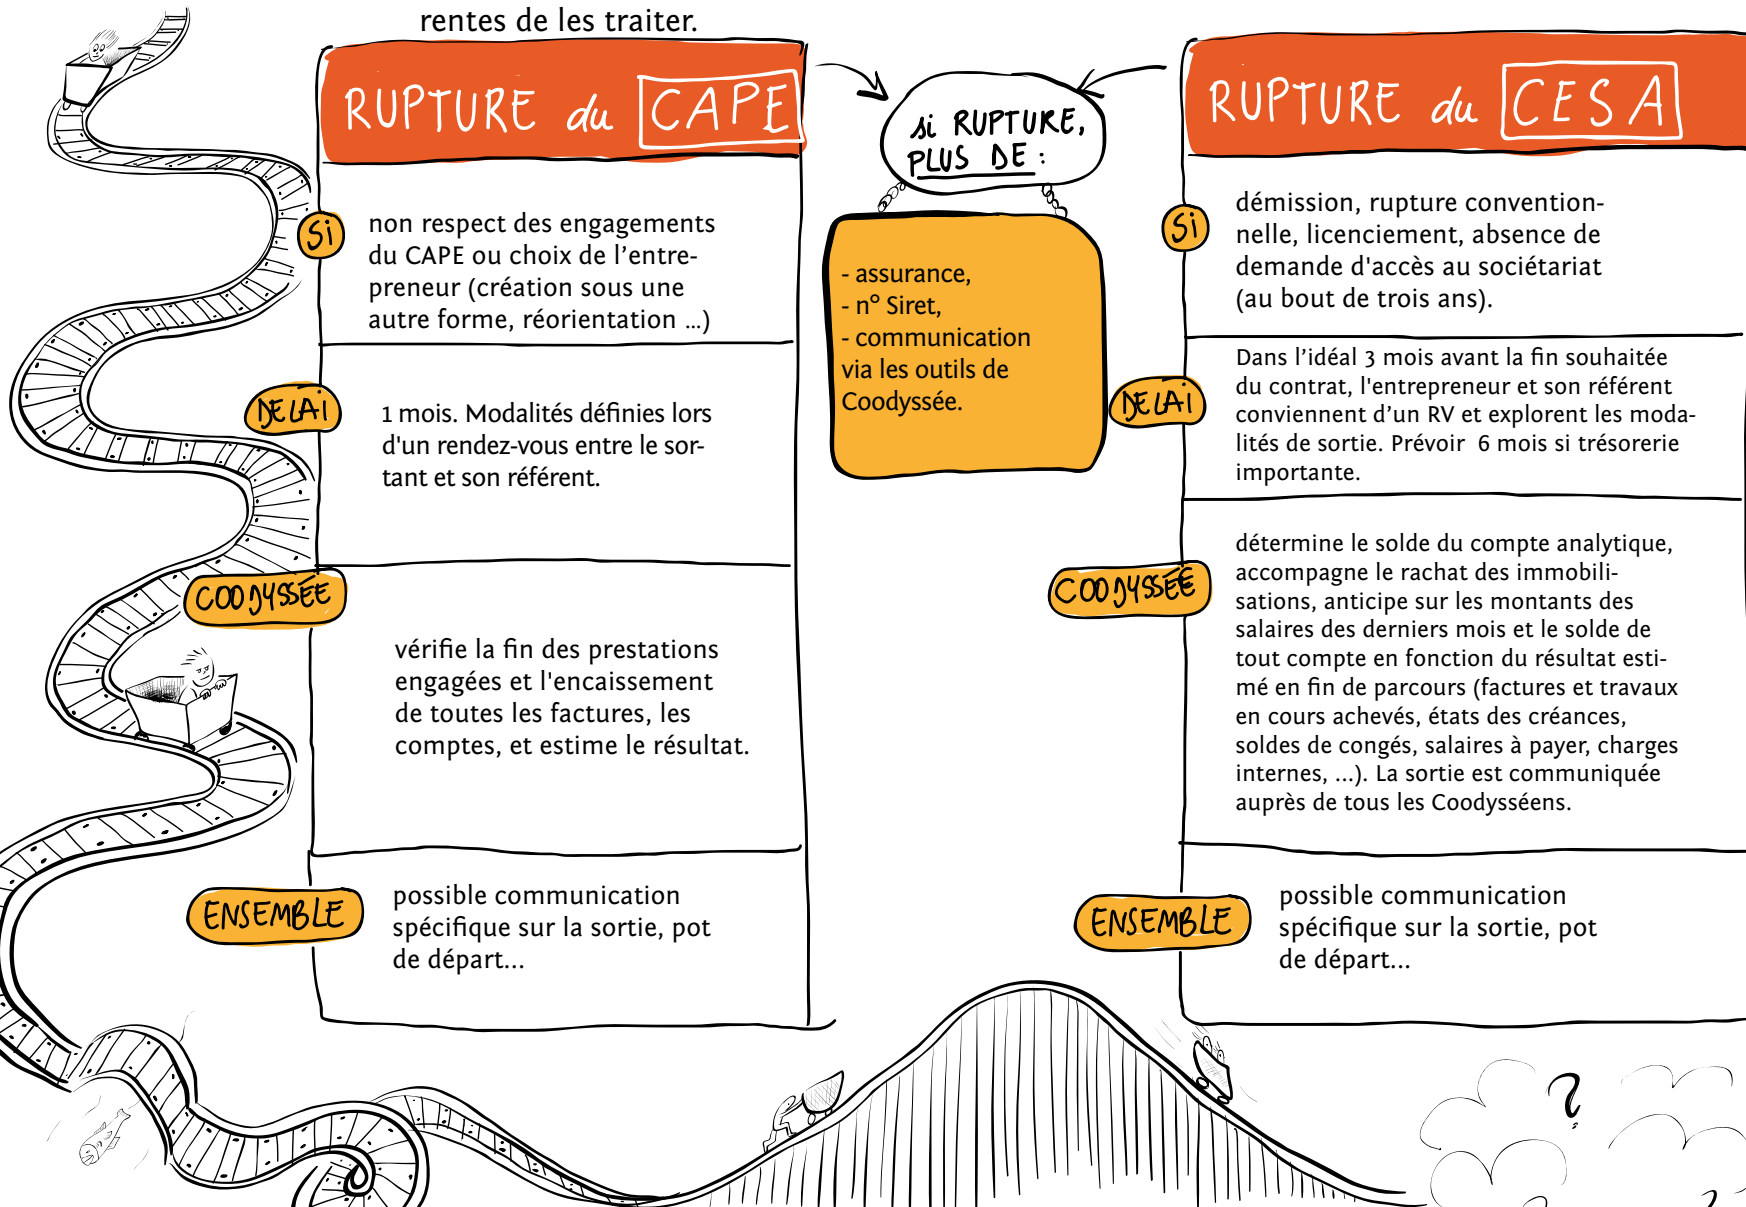 rentes de les traiter.
RUPTURE du CAPE
si
non respect des engagements
du CAPE ou choix de l'entre-
preneur (création sous une
autre forme, réorientation ...)
DELAI
1 mois. Modalités définies lors
d'un rendez-vous entre le sor-
tant et son référent.
COODYSSÉE
vérifie la fin des prestations
engagées et l'encaissement
de toutes les factures, les
comptes, et estime le résultat.
ENSEMBLE
possible communication
spécifique sur la sortie, pot
de départ...
si RUPTURE,
PLUS DE :
- assurance,
- n° Siret,
- communication
via les outils de
Coodyssée.
RUPTURE du CESA
si
démission, rupture convention-
nelle, licenciement, absence de
demande d'accès au sociétariat
(au bout de trois ans).
DELAI
Dans l'idéal 3 mois avant la fin souhaitée
du contrat, l'entrepreneur et son référent
conviennent d'un RV et explorent les moda-
lités de sortie. Prévoir 6 mois si trésorerie
importante.
COODYSSÉE
détermine le solde du compte analytique,
accompagne le rachat des immobili-
sations, anticipe sur les montants des
salaires des derniers mois et le solde de
tout compte en fonction du résultat esti-
mé en fin de parcours (factures et travaux
en cours achevés, états des créances,
soldes de congés, salaires à payer, charges
internes, ...). La sortie est communiquée
auprès de tous les Coodysséens.
ENSEMBLE
possible communication
spécifique sur la sortie, pot
de départ...
?